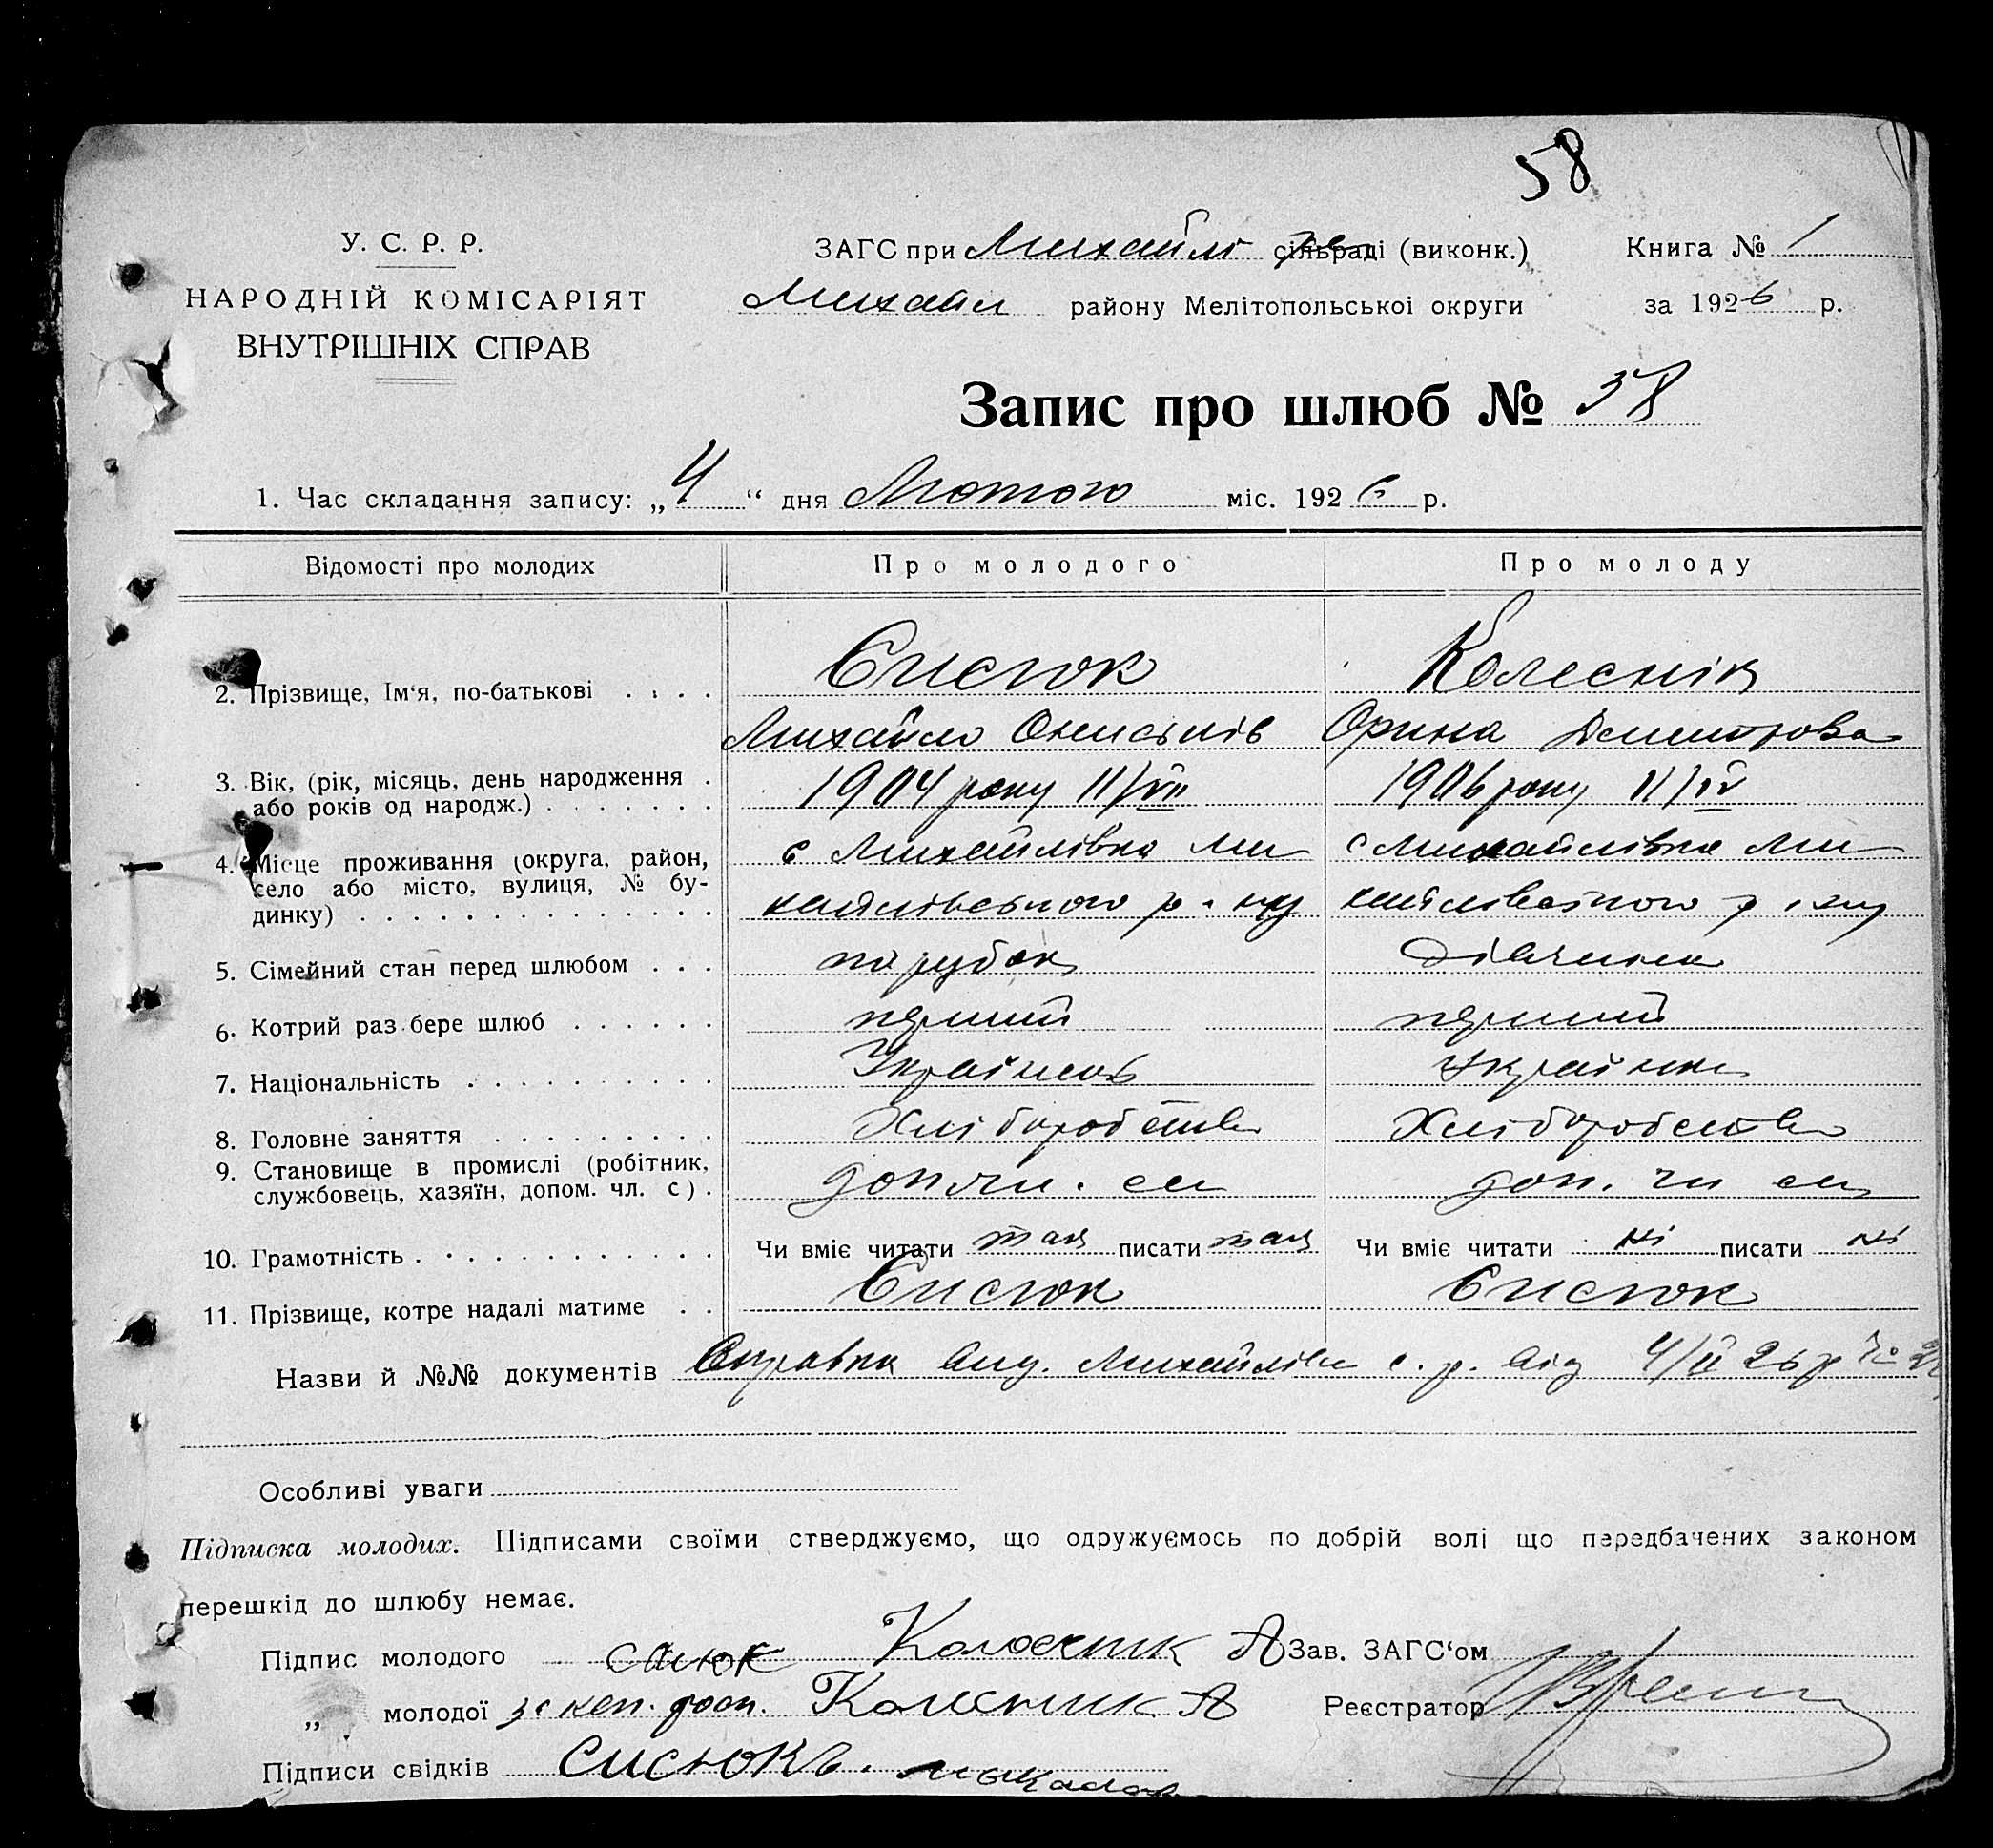 58
У. С. Р. Р.
НАРОДНІЙ КОМІСАРІЯТ
ВНУТРІШНІХ СПРАВ
ЗАГС при Михайлі сільраді (виконк.)
Михайл району Мелітопольської округи
Книга № 1
за 1926 р.
Запис про шлюб № 38
1. Час складання запису: „4“ дня Лютого міс. 1926 р.
Відомості про молодих Про молодого Про молоду
2. Прізвище, Ім‘я, по-батькові . . . . Сисюк Колеснік
Михайло Ониськів Орина Демитрова
3. Вік, (рік, місяць, день народження . 1904 року 11/VII 1906 року 11/IV
або років од народж.) . . . . . . .
4. Місце проживання (округа, район, с Михайлівка Ми с Михайлівка Ми
село або місто, вулиця, № бу- хайлівського р-ну хайлівського р-ну
динку) . . . . . . . . . . . . . .
5. Сімейний стан перед шлюбом . . . парубок дівчина
6. Котрий раз бере шлюб . . . . . . перший перший
7. Національність . . . . . . . . . . Українець Українка
8. Головне заняття . . . . . . . . . Хліборобство Хліборобство
9. Становище в промислі (робітник, доп. чл. см доп. чл см
службовець, хазяїн, допом. чл. с) .
10. Грамотність . . . . . . . . . . . Чи вміє читати так писати так Чи вміє читати ні писати ні
11. Прізвище, котре надалі матиме . . Сисюк Сисюк
Назви й №№ документів Справка вид. Михайлівк с. р. від 4/II 26 р №
Особливі уваги
Підписка молодих. Підписами своїми стверджуємо, що одружуємось по добрій волі що передбачених законом
перешкід до шлюбу немає.
Підпис молодого Колесник А Зав. ЗАГС‘ом
„ молодої Колесник А Реєстратор
Підписи свідків Сисюкъ.